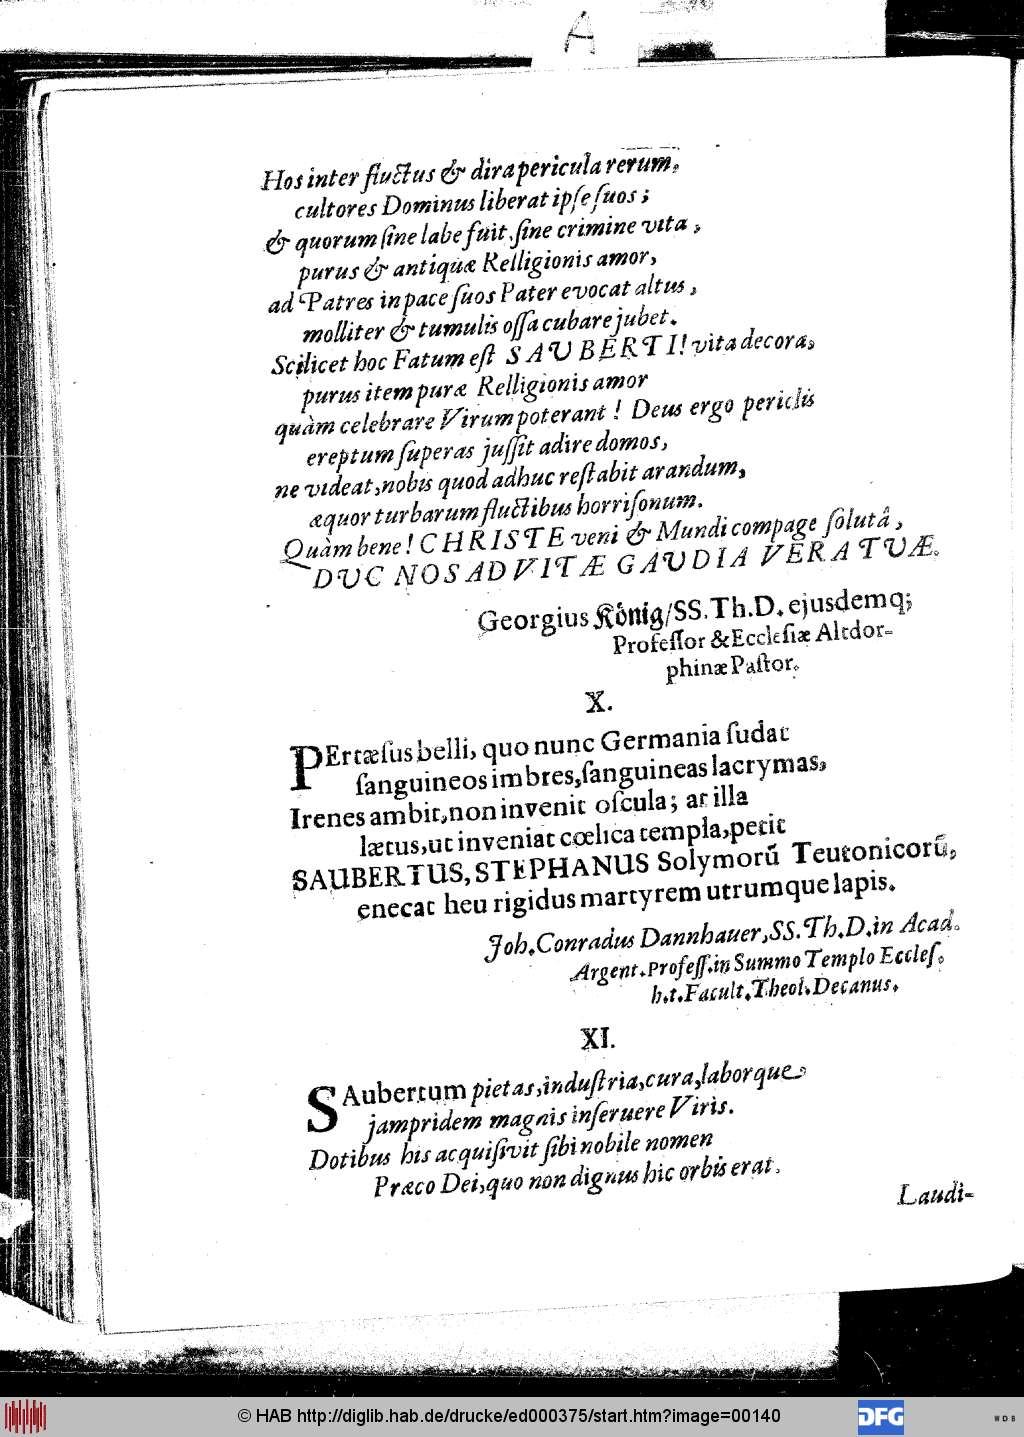 A
Hos inter fluctus & dira pericula rerum,
cultores Dominus liberat ipſe ſuos;
& quorum ſine labe fuit, ſine crimine vita,
purus & antiquæ Relligionis amor,
ad Patres in pace ſuos Pater evocat altus,
molliter & tumulis oſſa cubare jubet.
Scilicet hoc Fatum eſt SAUBERTI! vita decora,
purus item puræ Relligionis amor
quàm celebrare Virum poterant! Deus ergo periclis
ereptum ſuperas juſſit adire domos,
ne videat, nobis quod adhuc reſtabit arandum,
æquor turbarum fluctibus horriſonum.
Quàm bene! CHRISTE veni & Mundi compage ſolutâ,
DUC NOS AD VITÆ GAUDIA VERA TUÆ.
Georgius König/SS. Th. D. ejusdemq;
Profeſſor & Eccleſiæ Altdor-
phinæ Paſtor.
X.
PErtæſus belli, quo nunc Germania ſudat
ſanguineos imbres, ſanguineas lacrymas,
Irenes ambit, non invenit oſcula; at illa
lætus, ut inveniat cœlica templa, petit
SAUBERTUS, STEPHANUS Solymorū Teutonicorū,
enecat heu rigidus martyrem utrumque lapis.
Joh. Conradus Dannhauer, SS. Th. D. in Acad.
Argent. Profeſſ. in Summo Templo Eccleſ.
h. t. Facult. Theol. Decanus.
XI.
SAubertum pietas, induſtria, cura, laborque
jampridem magnis inſeruere Viris.
Dotibus his acquiſivit ſibi nobile nomen
Præco Dei, quo non dignus hic orbis erat.
Laudi-
© HAB http://diglib.hab.de/drucke/ed000375/start.htm?image=00140
DFG
WDB